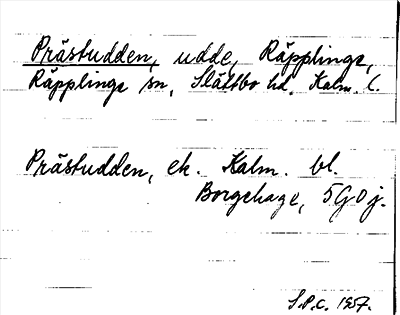 Prästudden, udde, Räpplinge,
Räpplinge sn, Slättbo hd, Kalm. l.
Prästudden, ek. Kalm. bl.
Borgehage, 5G0j.
S.P.C. 1957.